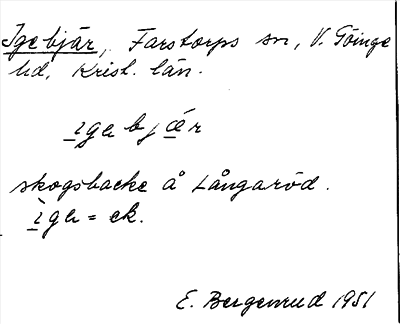 Igebjär, Farstorps sn, V. Göinge
hd, Krist. län.
ige bjær
skogsbacke å Långaröd.
ìge = ek.
E. Bergenrud 1951